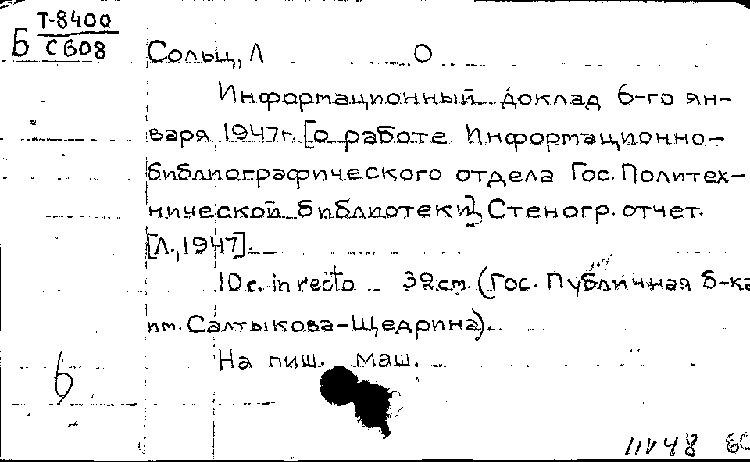 Б Т-8400
С608
Сольц, Л О
Информационный доклад 6-го ян-
варя 1947г. [о работе Информационно-
библиографического отдела Гос. Политех-
нической библиотеки]. Стеногр. отчет.
[Л., 1947].
10 с. in recto 32 см. (Гос. Публичная б-ка
им. Салтыкова-Щедрина).
На пиш. маш.
б